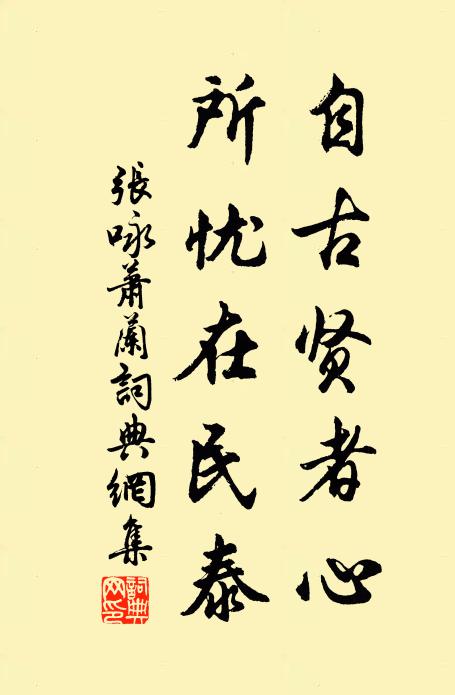 自古贤者心
所忧在民泰
張咏蕭蘭詞典網集
詞典网印